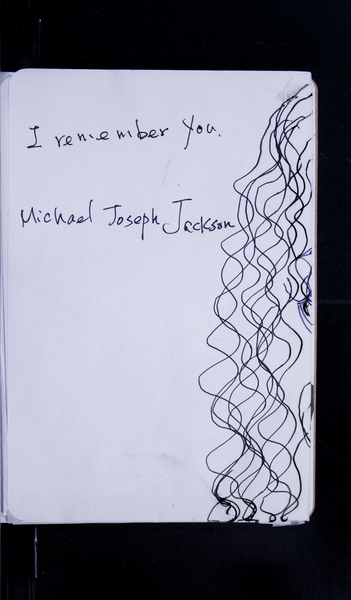 I remember You.
Michael Joseph Jackson